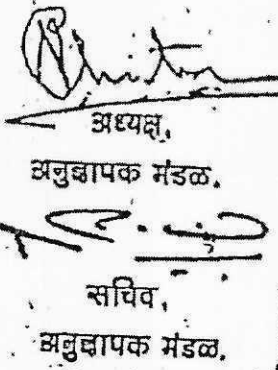 अध्यक्ष,
अनुज्ञापक मंडळ.
सचिव,
अनुज्ञापक मंडळ.